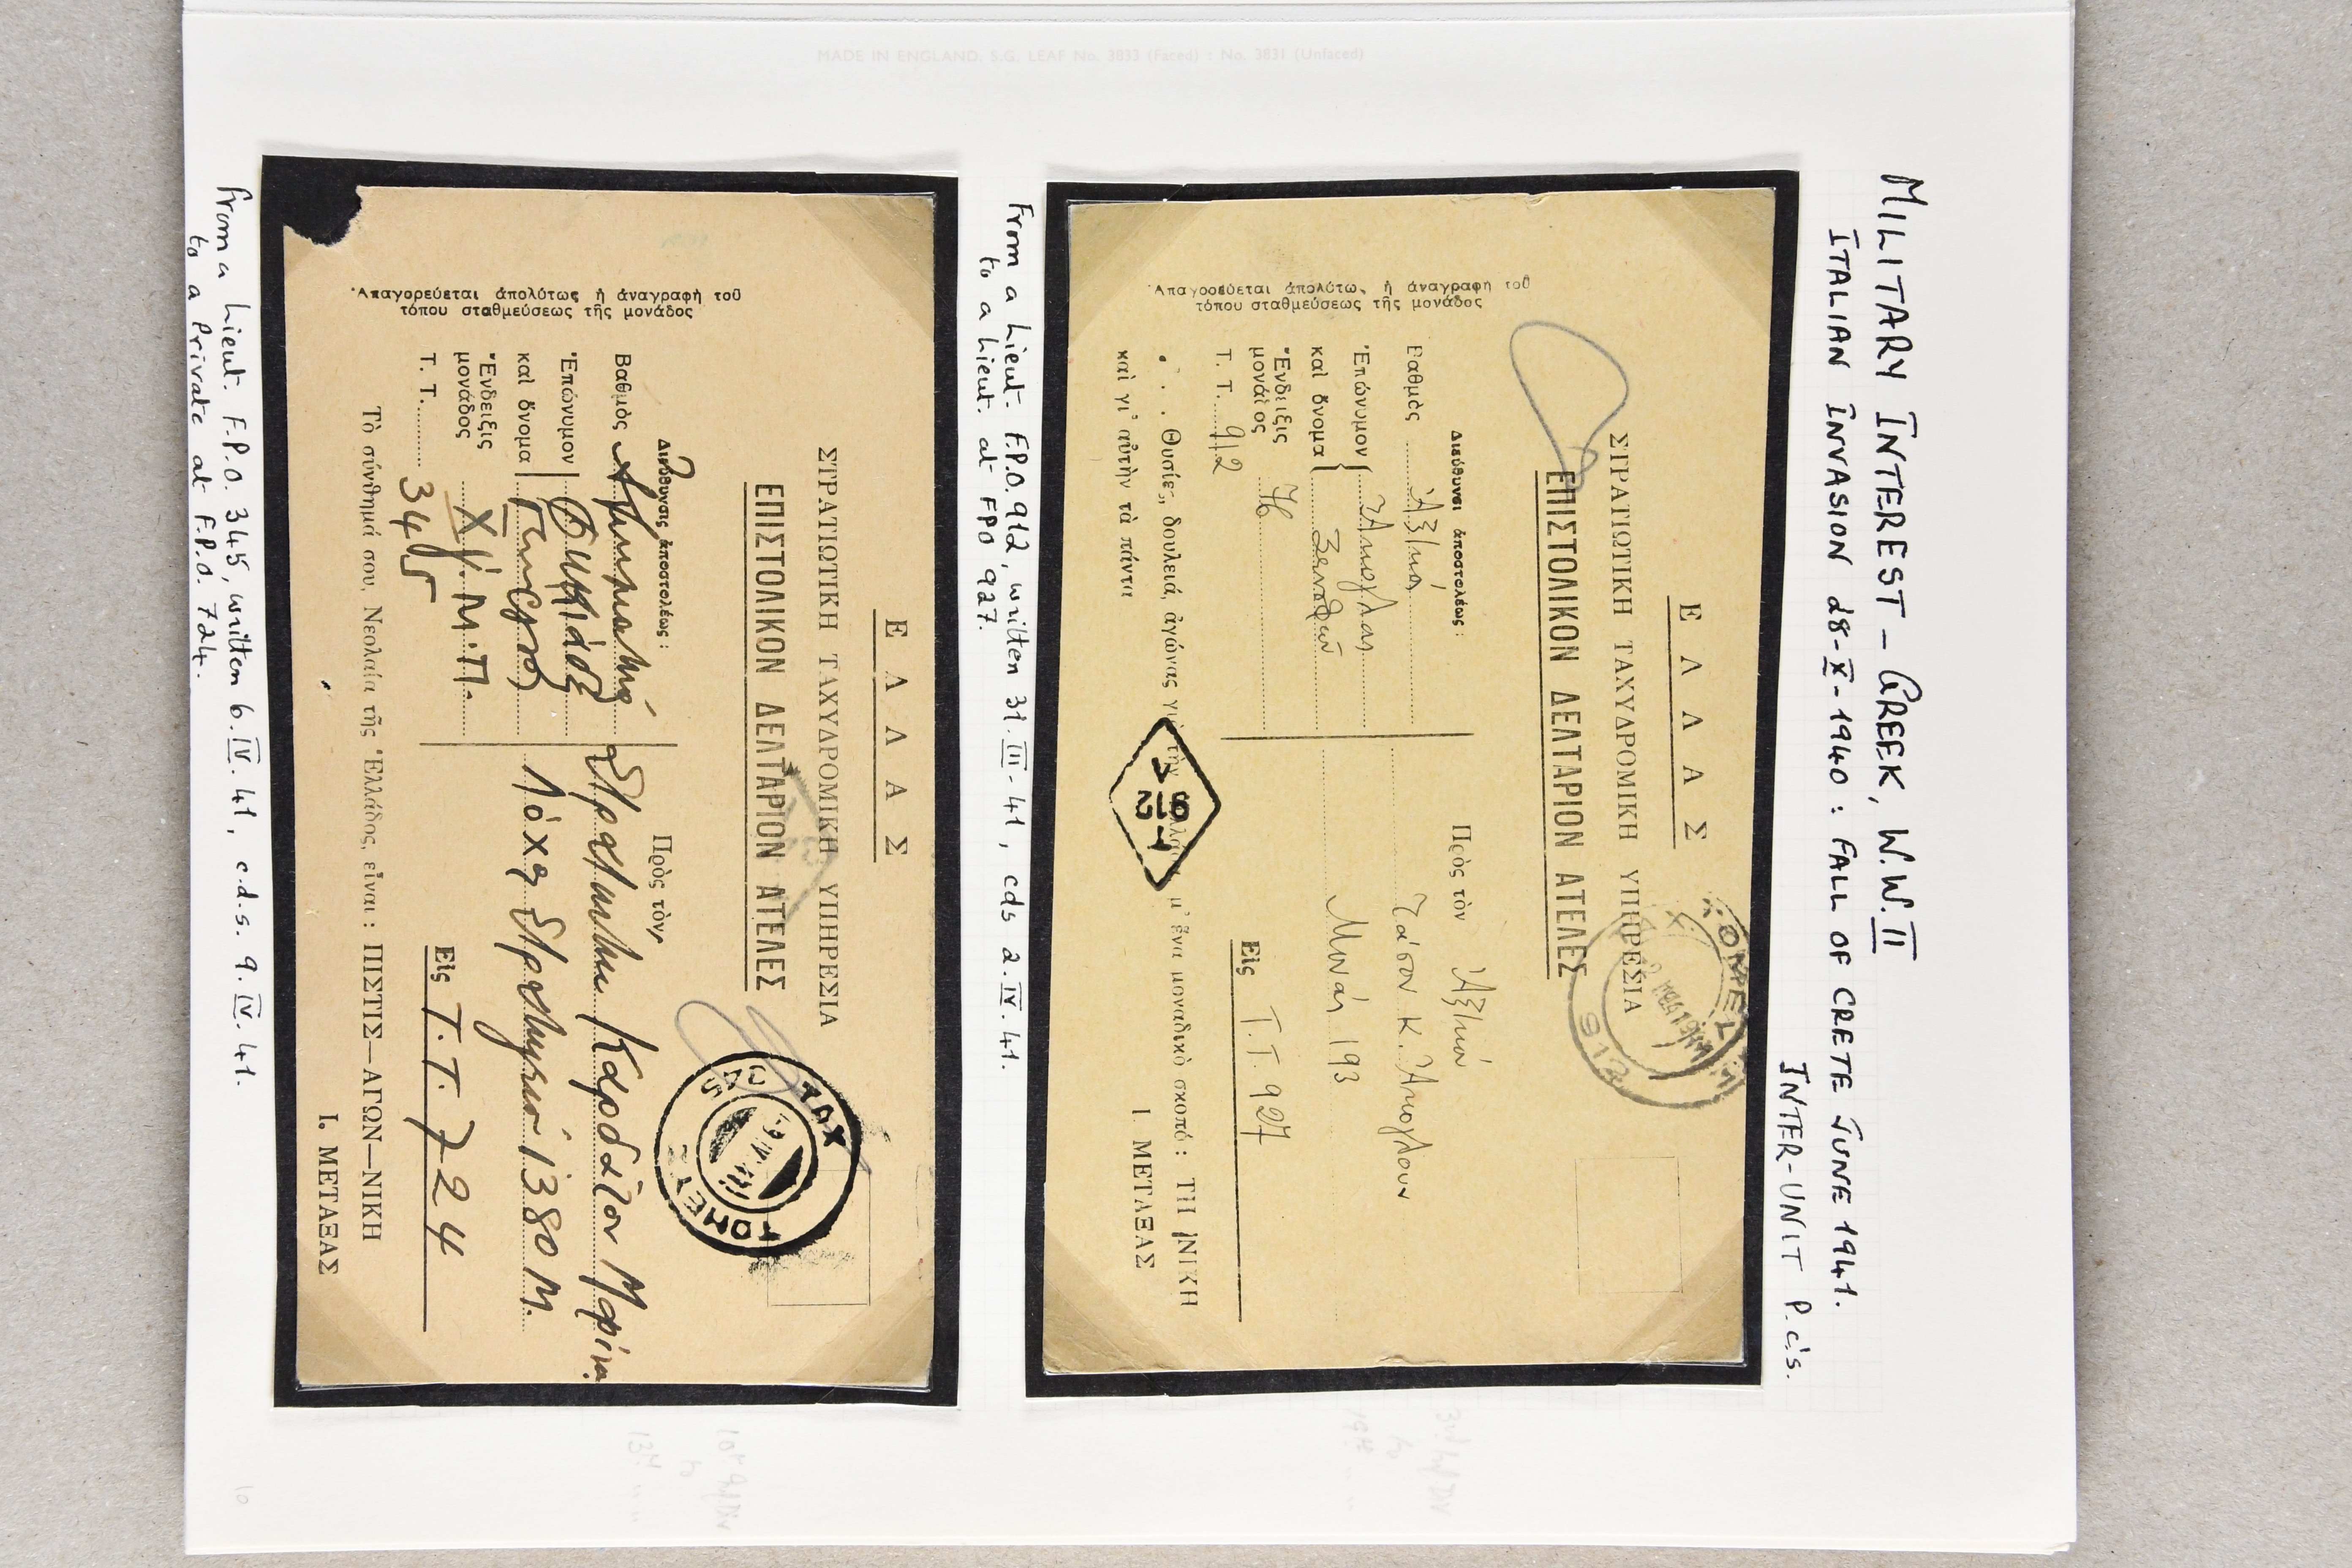 MILITARY INTEREST - GREEK, W.W.II
ITALIAN INVASION 28-X-1940 : FALL OF CRETE JUNE 1941.
INTER-UNIT P.C's.
ΕΛΛΑΣ
ΣΤΡΑΤΙΩΤΙΚΗ ΤΑΧΥΔΡΟΜΙΚΗ ΥΠΗΡΕΣΙΑ
ΕΠΙΣΤΟΛΙΚΟΝ ΔΕΛΤΑΡΙΟΝ ΑΤΕΛΕΣ
912
Διεύθυνσι ἀποστολέως :
Πρὸς τὸν
Βαθμὸς
Ἐπώνυμον
καὶ ὄνομα
Ἔνδειξις
μονάδος
Τ. Τ. 912
Μηνᾶν 193
Εἰς Τ.Τ. 927
Ἀπαγορεύεται ἀπολύτω, ἡ ἀναγραφὴ τοῦ
τόπου σταθμεύσεως τῆς μονάδος
Θυσίες, δουλειά, ἀγώνας γιὰ τὴν μ' ἕνα μοναδικὸ σκοπό : ΤΗ ΝΙΚΗ
καὶ γι' αὐτὴν τὰ πάντα
Ι. ΜΕΤΑΞΑΣ
912
From a Lieut. F.P.O. 912, written 31.III-41, cds 2.IV.41.
to a Lieut. at FPO 927.
ΕΛΛΑΣ
ΣΤΡΑΤΙΩΤΙΚΗ ΤΑΧΥΔΡΟΜΙΚΗ ΥΠΗΡΕΣΙΑ
ΕΠΙΣΤΟΛΙΚΟΝ ΔΕΛΤΑΡΙΟΝ ΑΤΕΛΕΣ
ΤΑΧ
ΤΟΜΕΥΣ
Διεύθυνσις ἀποστολέως :
Πρὸς τὸν
Βαθμὸς
Ἐπώνυμον
καὶ ὄνομα
Ἔνδειξις
μονάδος
Χ/.Μ.Π.
Τ. Τ. 345
Στρατιώτην Καρδάσον Μαρίνο
Λόχος Στρατηγείου 1380 Μ.
Εἰς Τ.Τ. 724
Ἀπαγορεύεται ἀπολύτως ἡ ἀναγραφὴ τοῦ
τόπου σταθμεύσεως τῆς μονάδος
Τὸ σύνθημά σου, Νεολαία τῆς Ἑλλάδος, εἶναι : ΠΙΣΤΙΣ—ΑΓΩΝ—ΝΙΚΗ
Ι. ΜΕΤΑΞΑΣ
From a Lieut. F.P.O. 345, written 6.IV.41, c.d.s. 9.IV.41.
to a Private at F.P.O. 724.
MADE IN ENGLAND. S.G. LEAF No. 3833 (Faced) : No. 3831 (Unfaced)
10